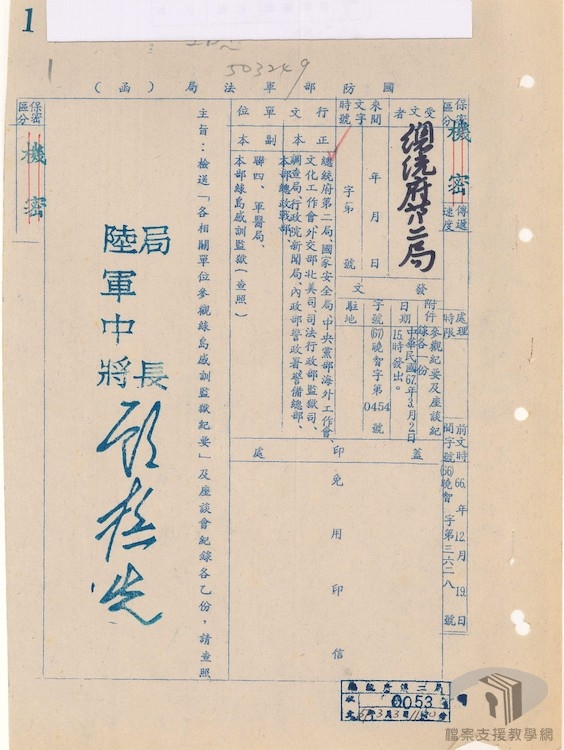 1
503249
國防部軍法局（函）
保密區分
機密
傳遞速度
處理時限
前文時間字號
66.年12.月19.日
(66)曉智字第三六二八號
受文者
總統府第二局
來文時間字號
年月日
字第號
發文
附件
參觀紀要及座談紀錄各一份
日期
中華民國67.年3.月2日15.時發出。
字號
(67)曉智字第0454號
駐地
蓋印處
免用印信
行文單位
正本
總統府第二局、國家安全局、中央黨部海外工作會、
文化工作會、外交部北美司、司法行政部監獄司、
調查局、行政院新聞局、內政部警政署、警備總部、
本部總政戰部、
副本
聯四、軍醫局、
本部綠島感訓監獄（查照）
主旨：檢送「各相關單位參觀綠島感訓監獄紀要」及座談會紀錄各乙份，請查照
局長
陸軍中將
保密區分
機密
總統府第二局
收文
0053
檔案支援教學網